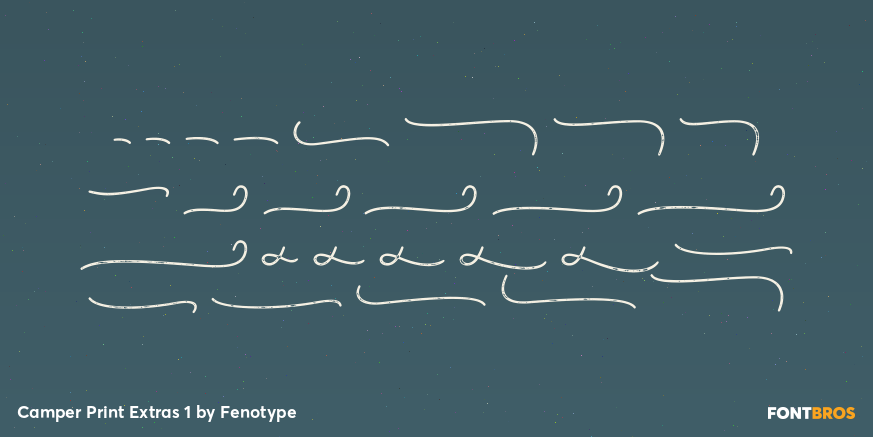 Camper Print Extras 1 by Fenotype
FONTBROS